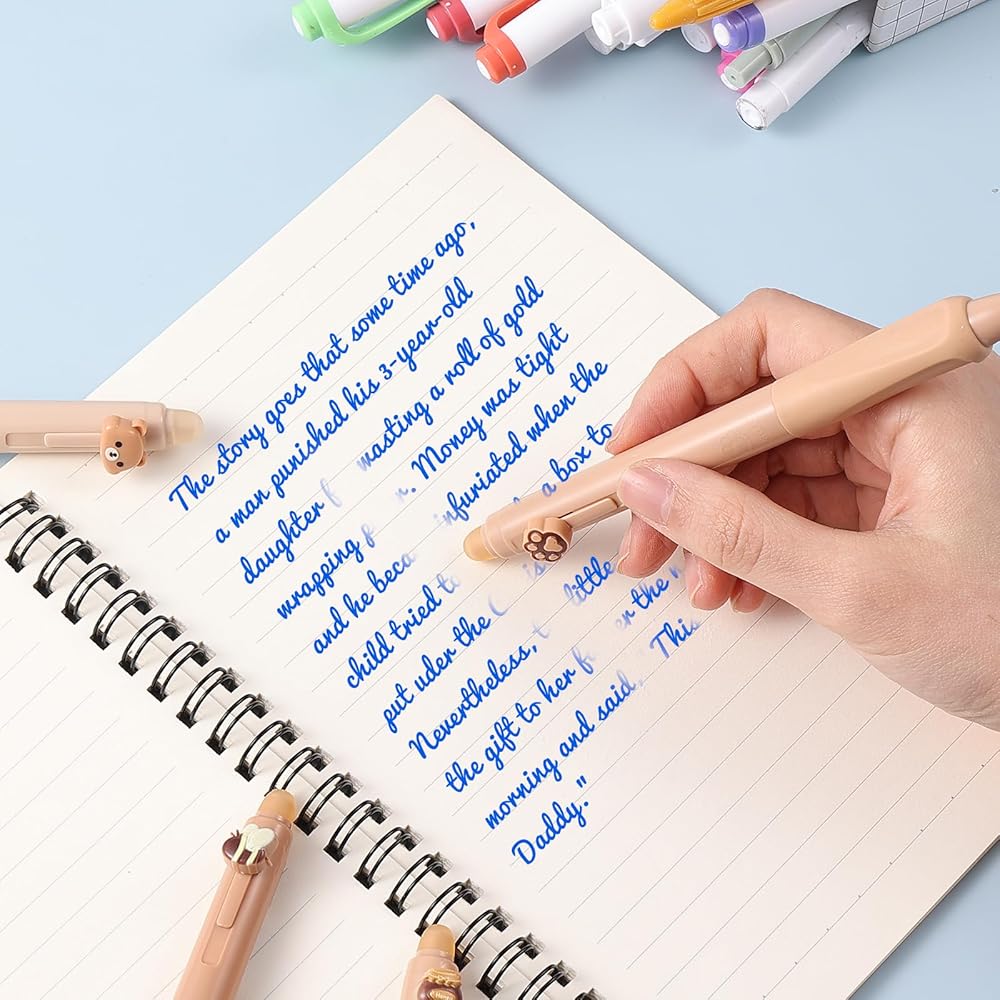 The story goes that some time ago,
a man punished his 3-year-old
daughter wasting a roll of gold
wrapping Money was tight
and he infuriated when the
child tried a box to
put uder the
Nevertheless, little
the gift to her
morning and said, This
Daddy."